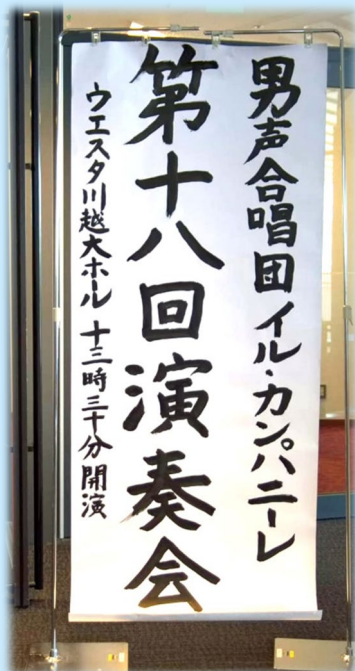 男声合唱団イル・カンパニーレ
第十八回演奏会
ウエスタ川越大ホール 十三時三十分開演